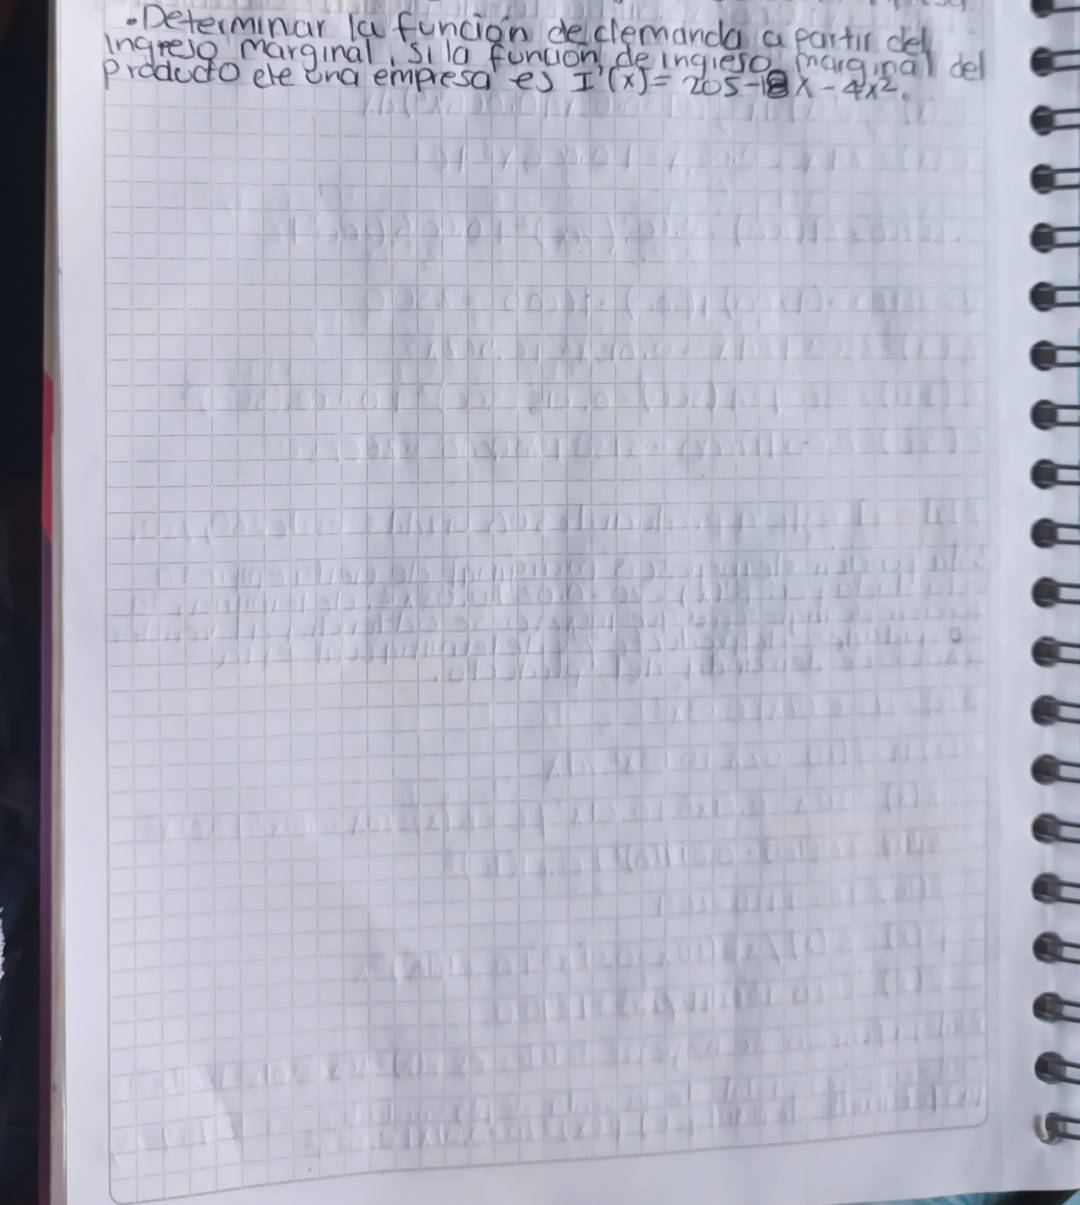 •Determinar la función de demanda a partir del
ingreso marginal, si la función de ingreso marginal del
producto de una empresa es I'(x)= 205-18x-4x².